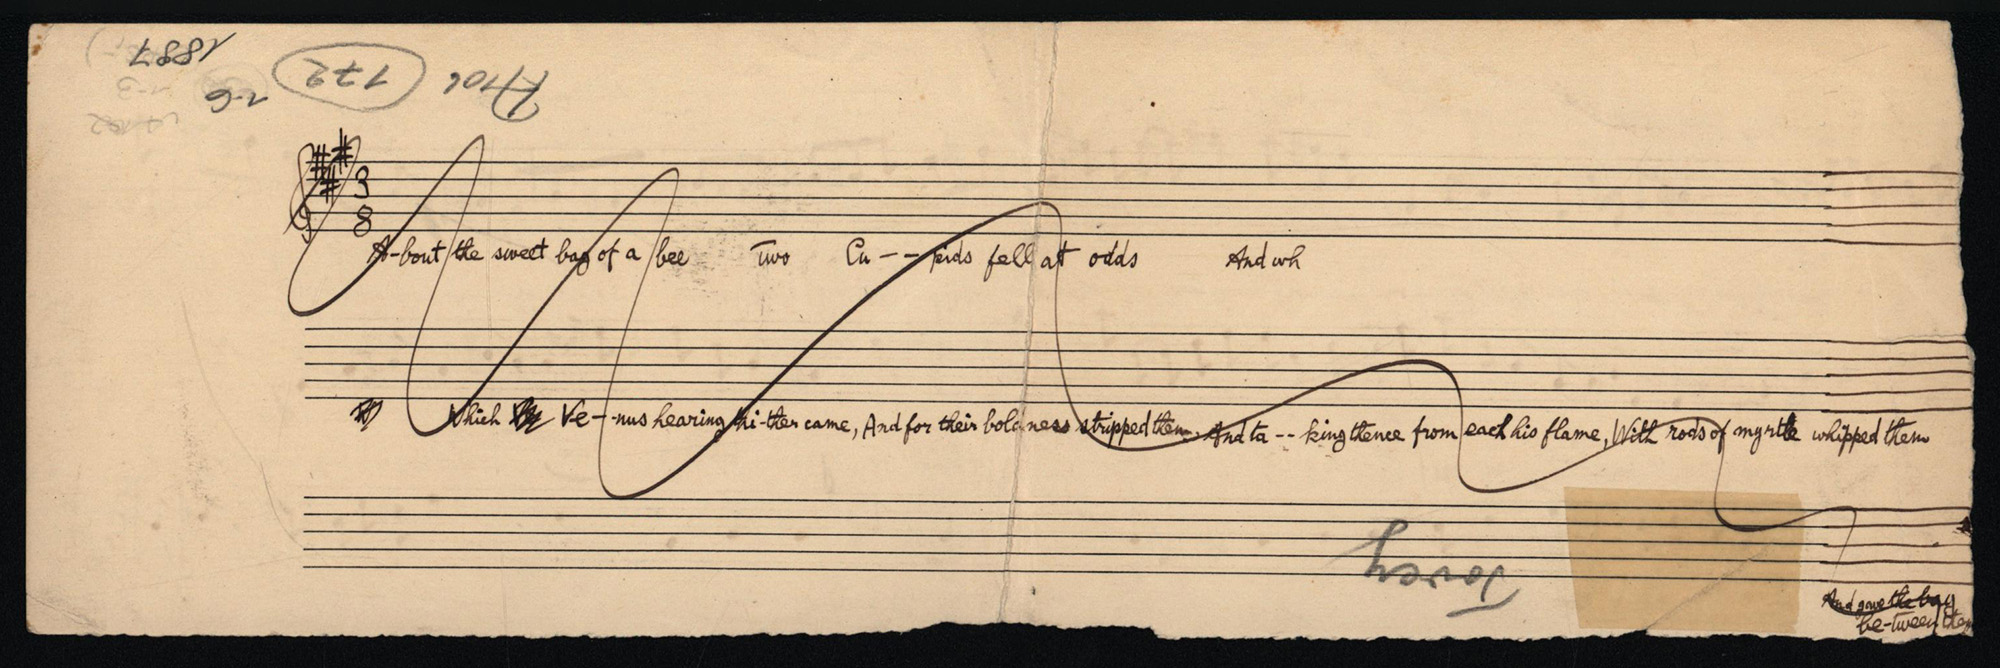 1887
1-6
172
3
8
A-bout the sweet bag of a bee Two Cu--pids fell at odds And wh
Which Ve--nus hearing thi-ther came, And for their boldness stripped them. And ta--king thence from each his flame, With rods of myrtle whipped them
Tovey
And gave the bag
be-tween them